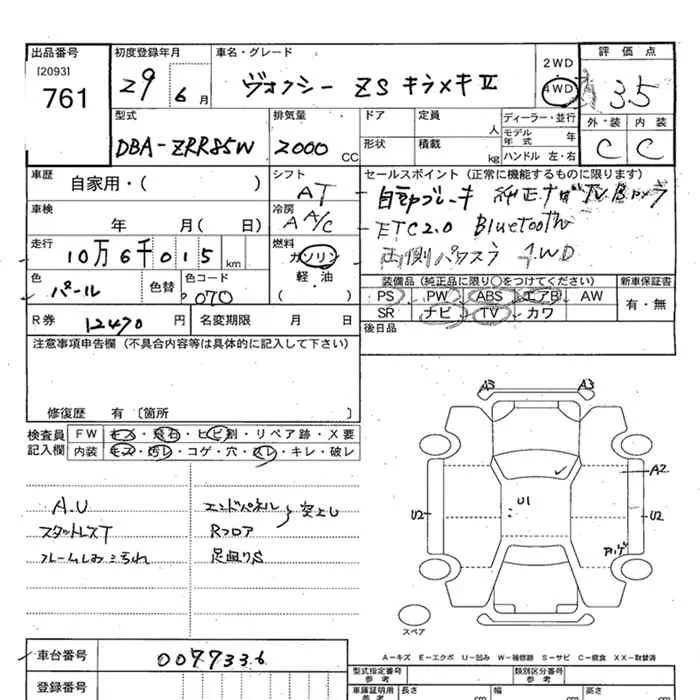 出品番号 初度登録年月 車名・グレード 2WD 4WD 評価点
[2093]
761 29 6月 ヴォクシー ZS キラメキⅡ 3.5
型式 排気量 ドア 定員 人 ディーラー・並行 外装 内装
DBA-ZRR85W 2000 CC 形状 積載 kg モデル年式 年 C C
ハンドル 左・右
車歴 自家用・( ) シフト AT セールスポイント (正常に機能するものに限ります)
自動ブレーキ 純正ナビ TV Bカメラ
車検 年 月( 日) 冷房 A A/C ETC2.0 Bluetooth
走行 10万6千015 km 燃料 ガソリン 軽・油 ( ) 両側パワスラ 4WD
色 パール 色替 色コード 070
装備品 (純正品に限り○をつけてください) 新車保証書
PS PW ABS エアB AW 有・無
SR ナビ TV カワ
R券 12470 円 名変期限 月 日 後日品
注意事項申告欄 (不具合内容等は具体的に記入して下さい)
修復歴 有 〔箇所 〕
検査員 FW キズ・飛石・ヒビ割・リペア跡・X要
記入欄 内装 キズ・汚レ・コゲ・穴・スレ・キレ・破レ
A.U エンドパネル 突上し
スタットレスT Rフロア
フレームしみこ汚れ 足廻りS
A3 A3
A2
U1
U2 U2
スペア
A−キズ E−エクボ U−凹み W−補修跡 S−サビ C−腐食 XX−取替済
車台番号 0077336
登録番号
型式指定番号 参考 類別区分番号 参考
車庫証明用 参考 長さ cm 幅 cm 高さ cm